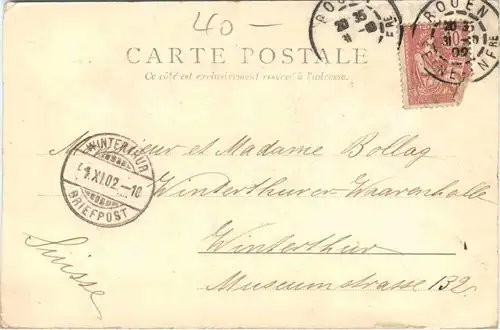 40-
CARTE POSTALE
Ce côté est exclusivement réservé à l'adresse.
ROUEN
10
WINTERTHUR
1.XI.02.-10
BRIEFPOST
Monsieur et Madame Bollag
Winterthurer-Waarenhalle
Winterthur
Museumstrasse 132
Suisse